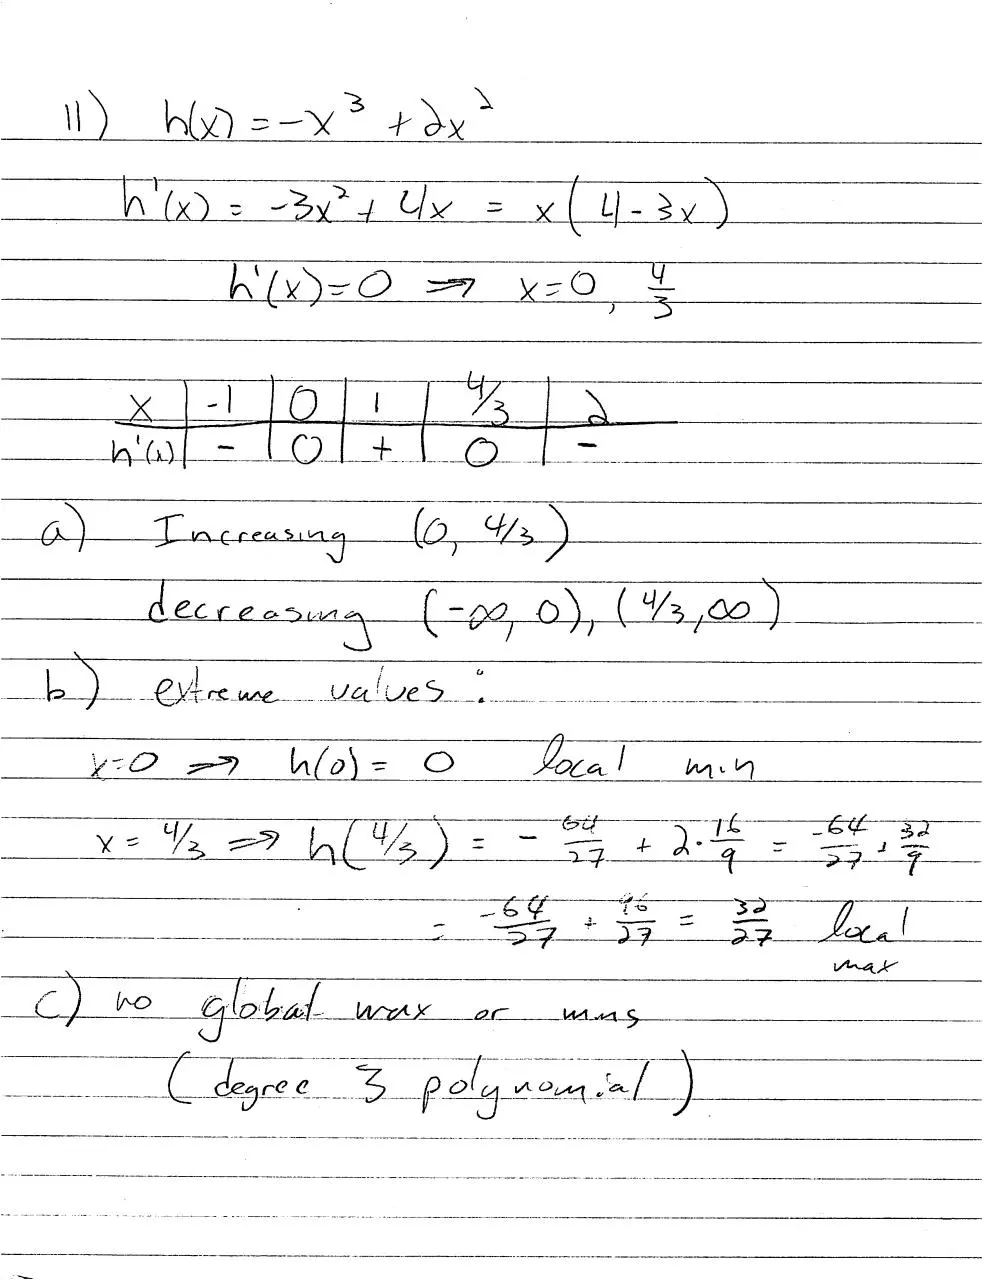 11) h(x) = -x³ + 2x²
h'(x) = -3x² + 4x = x(4-3x)
h'(x)=0 ⇒ x=0, 4/3
x | -1 | 0 | 1 | 4/3 | 2
h'(x) | - | 0 | + | 0 | -
a) Increasing (0, 4/3)
decreasing (-∞, 0), (4/3, ∞)
b) extreme values:
x=0 ⇒ h(0) = 0 local min
x = 4/3 ⇒ h(4/3) = - 64/27 + 2·16/9 = -64/27 + 32/9
= -64/27 + 96/27 = 32/27 local
max
c) no global max or mins
(degree 3 polynomial)